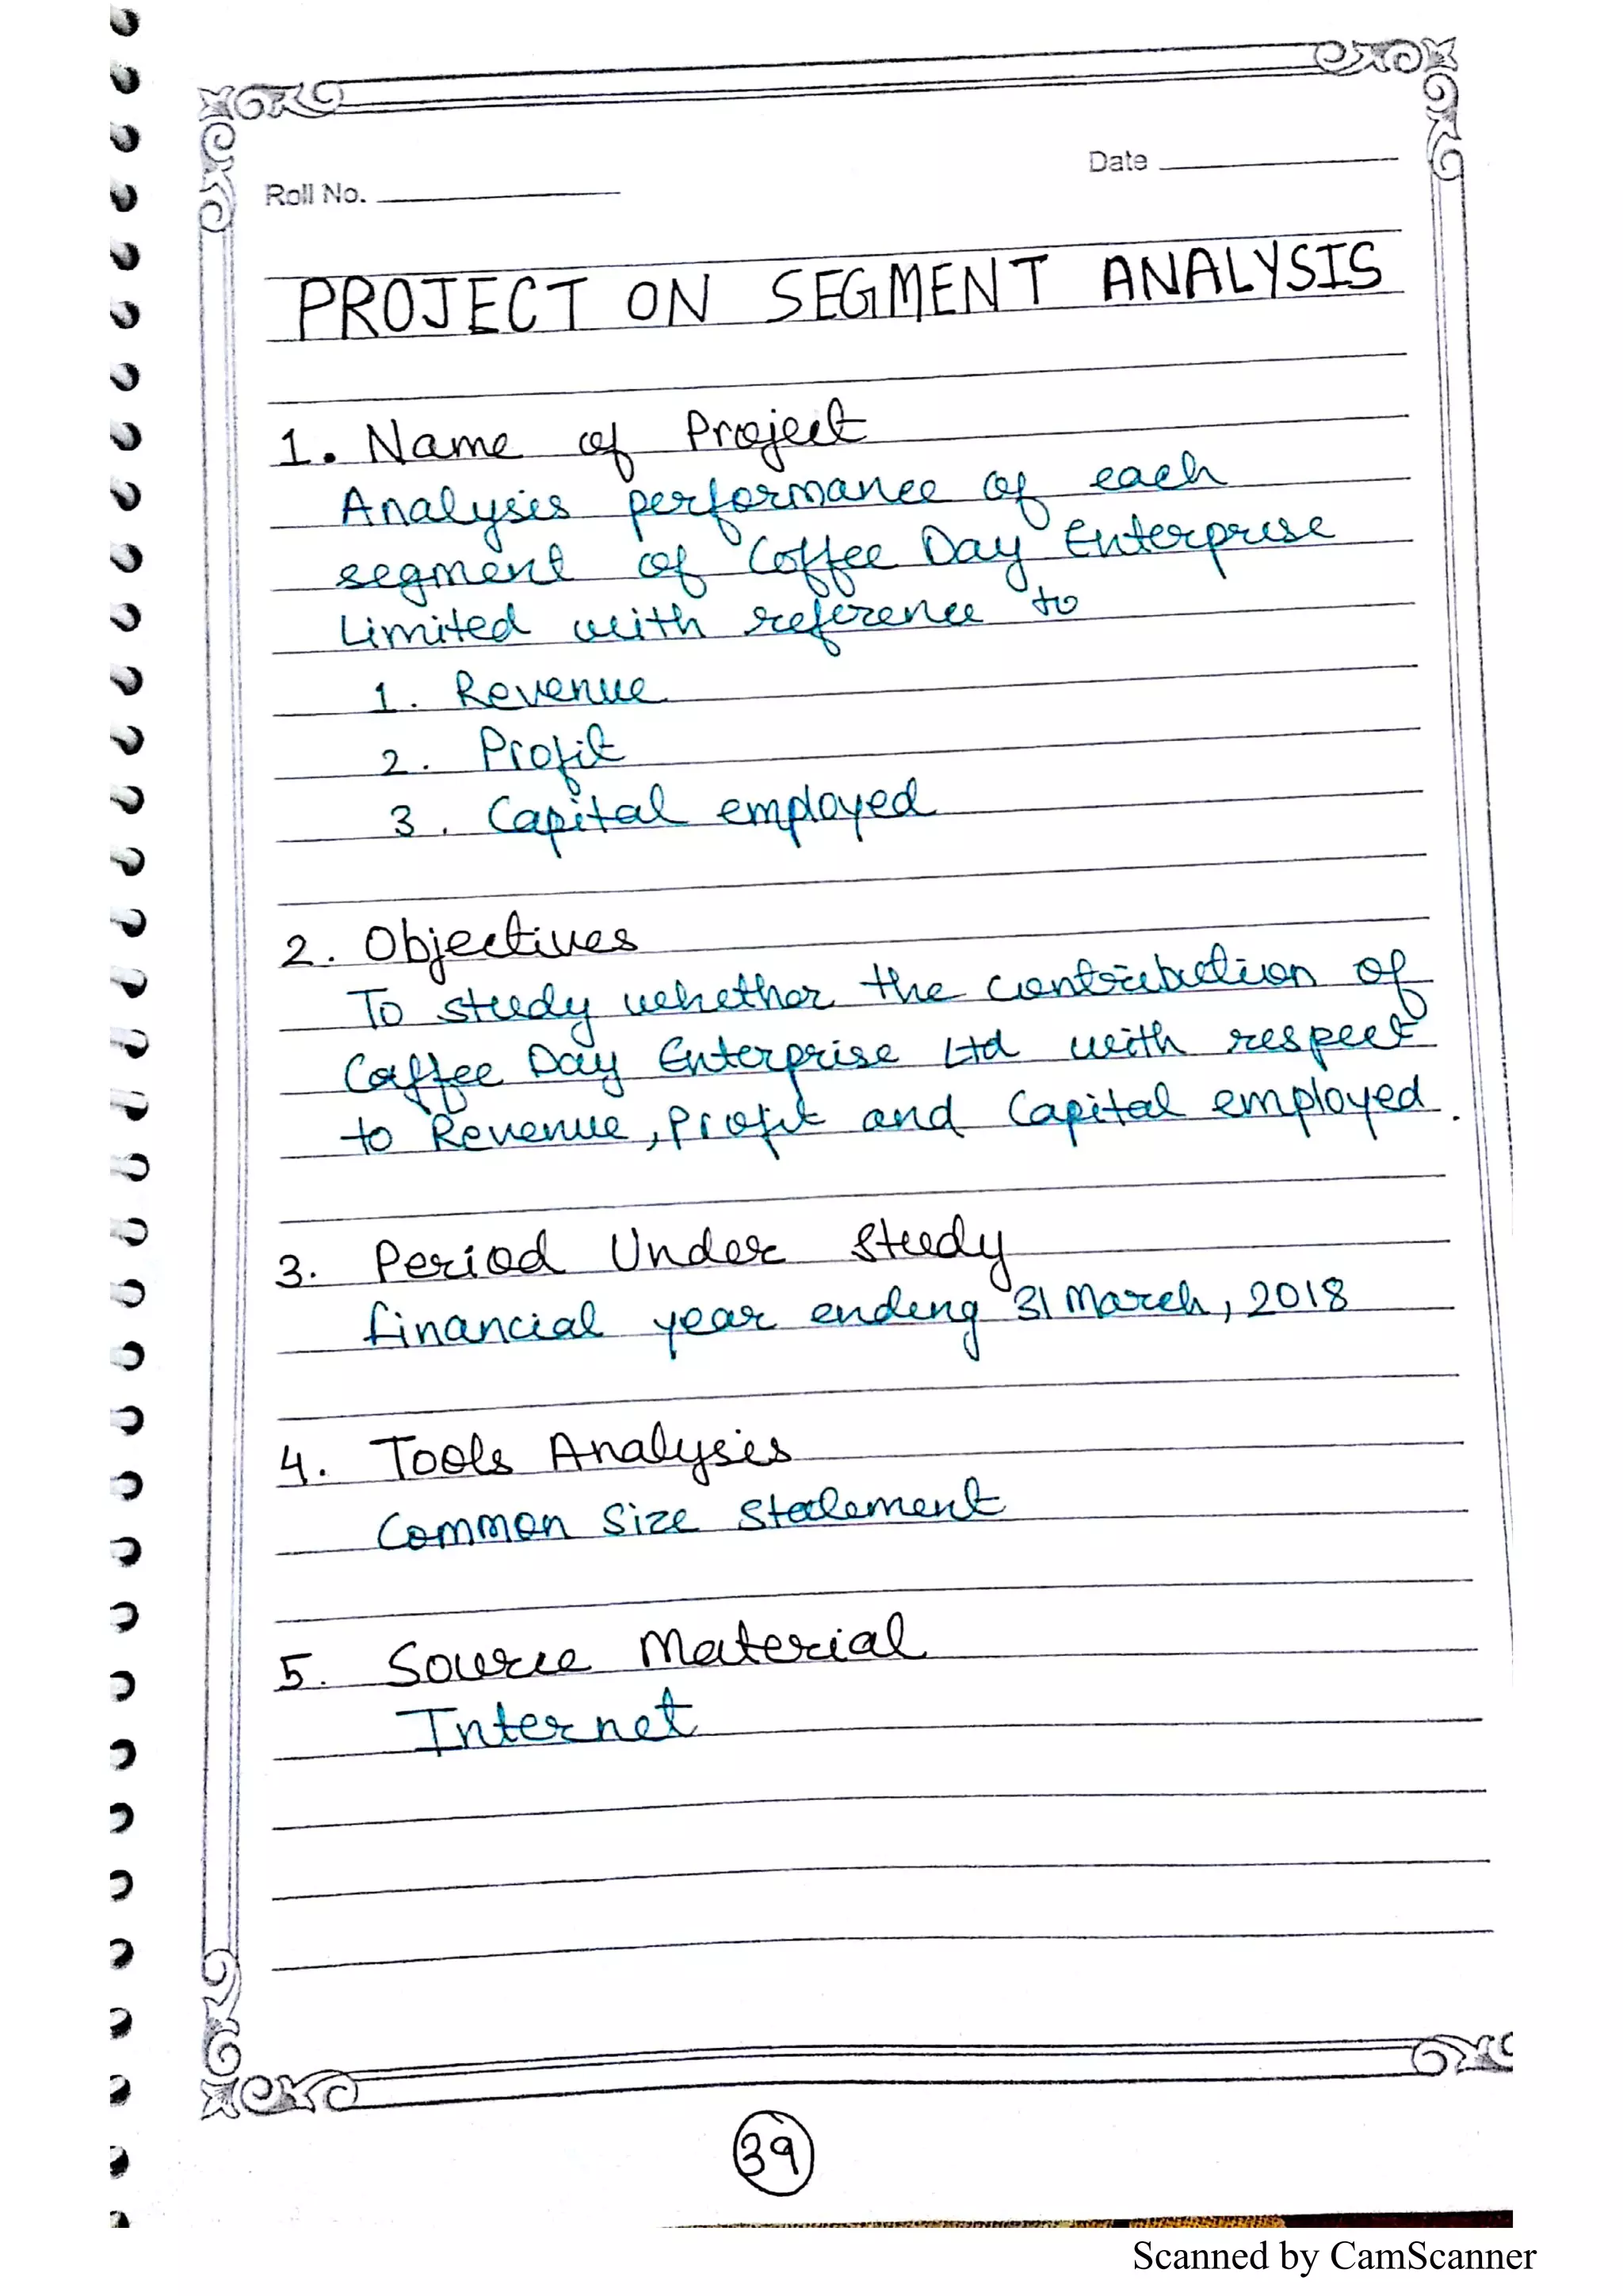 Date
Roll No.
PROJECT ON SEGMENT ANALYSIS
1. Name of Project
Analysis performance of each
segment of Coffee Day Enterprise
Limited with reference to
1. Revenue
2. Profit
3. Capital employed
2. Objectives
To study whether the contribution of
Coffee Day Enterprise Ltd with respect
to Revenue, Profit and Capital employed.
3. Period Under Study
financial year ending 31 March, 2018
4. Tools Analysis
Common Size Statement
5. Source Material
Internet
39
Scanned by CamScanner